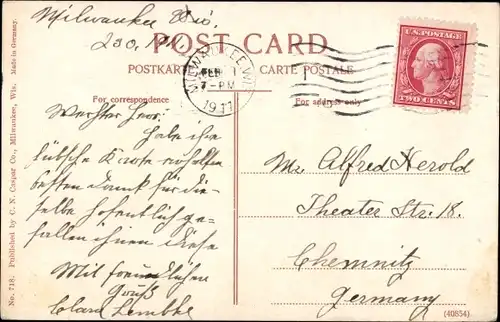 Milwaukee Wis.
POST CARD
POSTKARTE
CARTE POSTALE
MILWAUKEE, WIS.
FEB 1
7-PM
1911
U.S. POSTAGE
TWO CENTS
For correspondence
For address only
Werther Herr:
Habe ihre
hübsche Karte erhalten
besten Dank für die-
selbe hoffentlich ge-
fallen ihnen diese
Mit freundlichem
Gruß
Clara Lembke
Mr. Alfred Herold
Theater Str. 18.
Chemnitz
Germany
(40854)
No. 718. Published by C. N. Caspar Co., Milwaukee, Wis. Made in Germany.